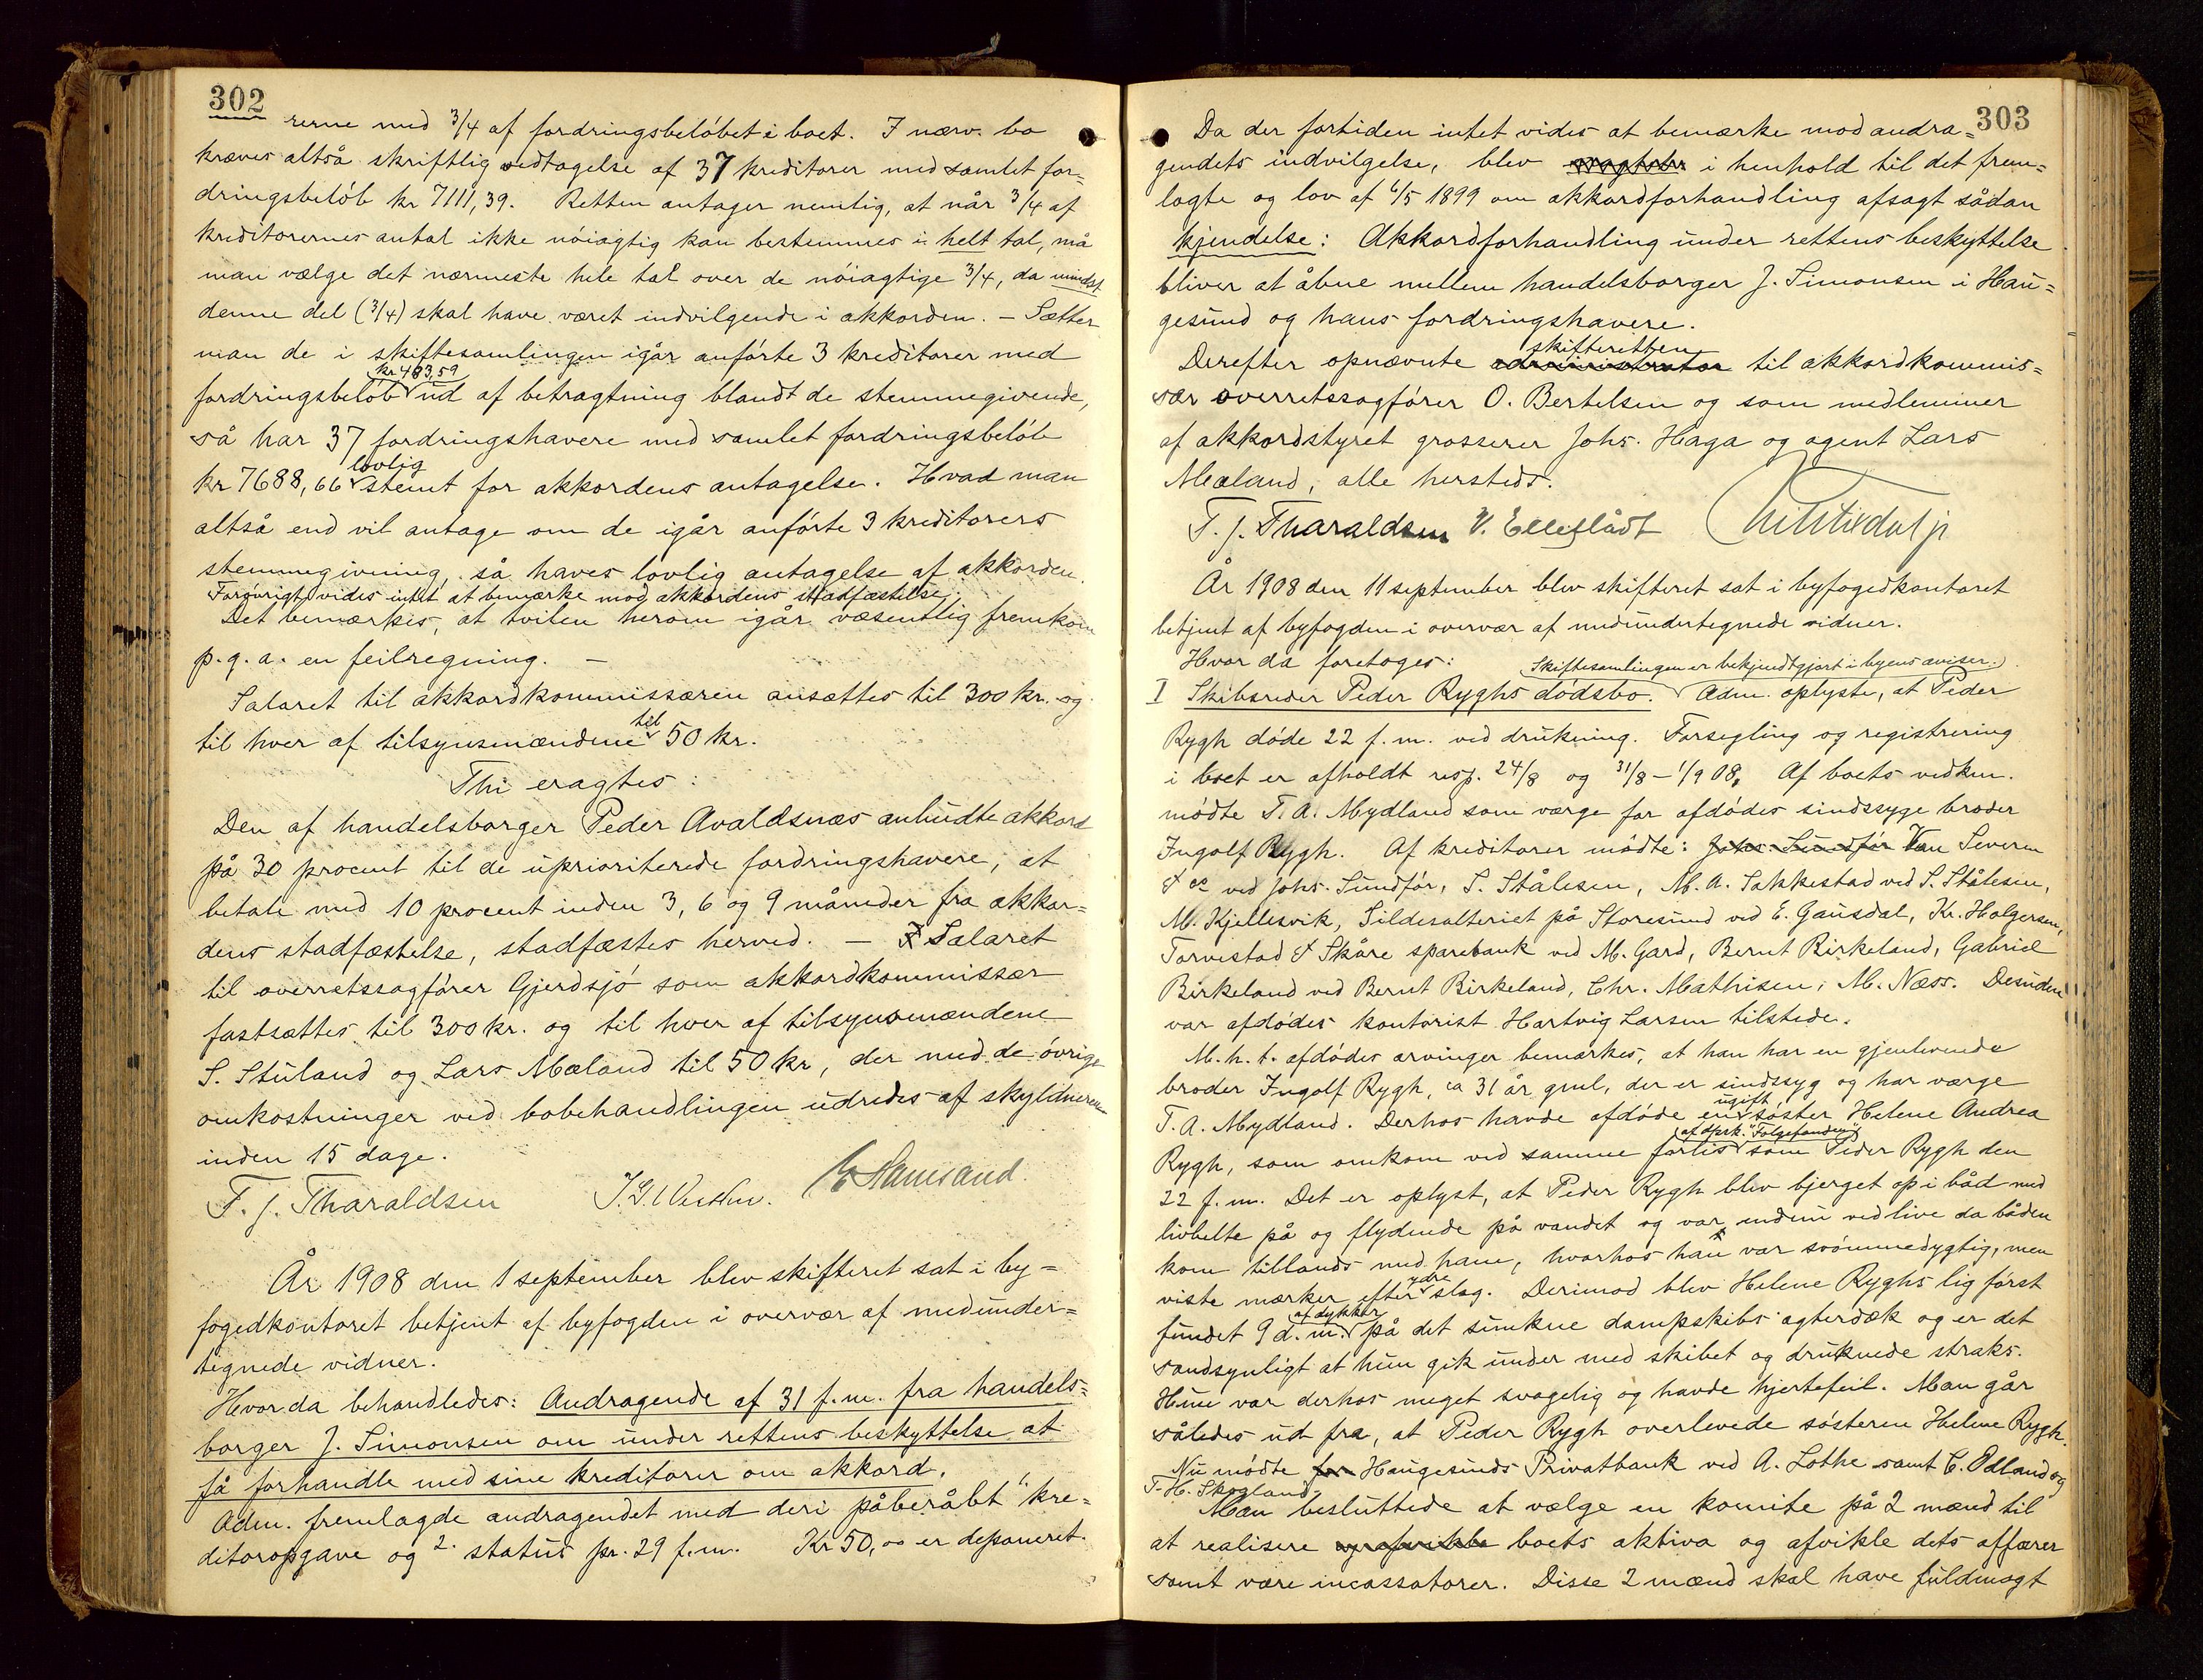 302
rerne med 3/4 af fordringsbeløbet i boet. I nærv. bo
kræves altså skriftlig vedtagelse af 37 kreditorer med samlet for=
dringsbeløb kr 7111,39. Retten antager nemlig, at når 3/4 af
kreditorernes antal ikke nøiagtig kan bestemmes i helt tal, må
man vælge det nærmeste hele tal over de nøiagtige 3/4, da mindst
denne del (3/4) skal have været indvilgende i akkorden. – Sætter
man de i skiftesamlingen igår anførte 3 kreditorer med
kr 483,59
fordringsbeløb ud af betragtning blandt de stemmegivende,
så har 37 fordringshavere med samlet fordringsbeløb
lovlig
kr 7688,66 stemt for akkordens antagelse. Hvad man
altså end vil antage om de igår anførte 3 kreditorers
stemmegivning, så haves lovlig antagelse af akkorden.
Forøvrigt vides intet at bemærke mod akkordens stadfæstelse.
Det bemærkes, at tvilen herom igår væsentlig fremkom
p. g. a. en feilregning. –
Salaret til akkordkommissæren ansættes til 300 kr. og
til
til hver af tilsynsmændene 50 kr.
Thi eragtes:
Den af handelsborger Peder Avaldsnæs anbudte akkord
på 30 procent til de uprioriterede fordringshavere, at
betale med 10 procent inden 3, 6 og 9 måneder fra akkor=
dens stadfæstelse, stadfæstes herved. – Salaret
til overretssagfører Gjerdsjø som akkordkommissær
fastsættes til 300 kr. og til hver af tilsynsmændene
S. Stuland og Lars Mæland til 50 kr, der med de øvrige
omkostninger ved bobehandlingen udredes af skyldneren
inden 15 dage.
T. J. Tharaldsen
År 1908 den 1 september blev skifteret sat i by=
fogedkontoret betjent af byfogden i overvær af medunder=
tegnede vidner.
Hvor da behandledes: Andragende af 31 f.m. fra handels=
borger J. Simonsen om under rettens beskyttelse at
få forhandle med sine kreditorer om akkord.
Adm. fremlagde andragendet med deri påberåbt 1. kre=
ditoropgave og 2. status pr. 29 f.m. Kr 50,00 er deponeret.
303
Da der fortiden intet vides at bemærke mod andra=
gendets indvilgelse, blev i henhold til det frem=
lagte og lov af 6/5 1899 om akkordforhandling afsagt sådan
kjendelse: Akkordforhandling under rettens beskyttelse
bliver at åbne mellem handelsborger J. Simonsen i Hau=
gesund og hans fordringshavere.
skifteretten
Derefter opnævnte administrator til akkordkommis=
sær overretssagfører O. Bertelsen og som medlemmer
af akkordstyret grosserer Johs. Haga og agent Lars
Mæland, alle hersteds.
T. J. Tharaldsen
År 1908 den 11 september blev skifteret sat i byfogedkontoret
betjent af byfogden i overvær af medundertegnede vidner.
Hvor da foretoges: Skiftesamlingen er bekjendtgjort i byens aviser.
I Skibsreder Peder Ryghs dødsbo. Adm. oplyste, at Peder
Rygh døde 22 f.m. ved drukning. Forsegling og registrering
i boet er afholdt resp. 24/8 og 31/8 – 1/9 08. Af boets vedkm.
mødte T. A. Mydland som værge for afdødes sindssyge broder
Ingolf Rygh. Af kreditorer mødte: Johs. Sundfør Van Severen
& co ved Johs. Sundfør, S. Stålesen, M. A. Sakkestad ved S. Stålesen,
M. Kjellesvik, Sildesalteriet på Storesund ved E. Gausdal, Kr. Holgersen,
Torvestad & Skåre sparebank ved M. Gard, Bernt Birkeland, Gabriel
Birkeland ved Bernt Birkeland, Chr. Mathisen, M. Næss. Desuden
var afdødes kontorist Hartvig Larsen tilstede.
M. h. t. afdødes arvinger bemærkes, at han har en gjenlevende
broder Ingolf Rygh, ca 31 år gml, der er sindssyg og har værge
ugift
T. A. Mydland. Derhos havde afdøde en søster Helene Andrea
af dpsk. "Folgefonden"
Rygh, som omkom ved samme forlis som Peder Rygh den
22 f.m. Det er oplyst, at Peder Rygh blev bjerget op i båd med
livbelte på og flydende på vandet og var endnu ved live da båden
kom tillands med ham, hvorhos han var svømmedygtig, men
ydre
viste mærker efter slag. Derimod blev Helene Ryghs lig først
af dykker
fundet 9 d.m. på det sunkne dampskibs agterdæk og er det
sandsynligt at hun gik under med skibet og druknede straks.
Hun var derhos meget svagelig og havde hjertefeil. Man går
således ud fra, at Peder Rygh overlevede søsteren Helene Rygh.
Nu mødte for Haugesunds Privatbank ved A. Lothe samt C. Ødland og
T. H. Skogland.
Man besluttede at vælge en komite på 2 mænd til
at realisere og afvikle boets aktiva og afvikle dets affærer
samt være incassatorer. Disse 2 mænd skal have fuldmagt